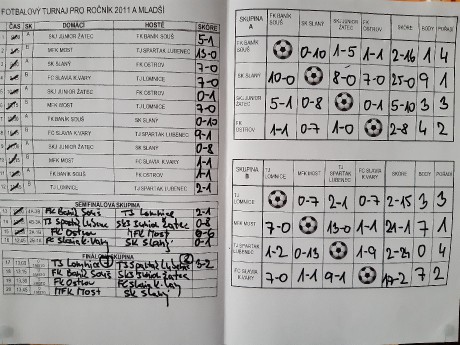 FOTBALOVÝ TURNAJ PRO ROČNÍK 2011 A MLADŠÍ
ČAS SK DOMÁCÍ HOSTÉ SKÓRE
1 A SKJ JUNIOR ŽATEC FK BANÍK SOUŠ 5-1
2 B MFK MOST TJ SPARTAK LUBENEC 13-0
SK SLANÝ FK OSTROV 7-0
FC SLAVIA K.VARY TJ LOMNICE 7-0
SKJ JUNIOR ŽATEC FK OSTROV 0-1
MFK MOST TJ LOMNICE 7-0
FK BANÍK SOUŠ SK SLANÝ 0-10
FC SLAVIA K.VARY TJ SPARTAK LUBENEC 9-1
SKJ JUNIOR ŽATEC SK SLANÝ 0-8
MFK MOST FC SLAVIA K.VARY 1-1
FK BANÍK SOUŠ FK OSTROV 1-1
12 TJ LOMNICE TJ SPARTAK LUBENEC 2-1
SEMIFINÁLOVÁ SKUPINA
13 FK Baník Souš TJ Lomnice 2-1
14 TJ Spartak Lubenec SKJ Junior Žatec 0-8
15 FK Ostrov MFK Most 0-6
16 FC Slavia K. Vary SK Slaný 0-1
FINÁLOVÁ SKUPINA
17 13,00 TJ Lomnice TJ Spartak Lubenec 3-2
18 FK Baník Souš SKJ Junior Žatec
19 FK Ostrov FC Slavia K. Vary
20 MFK Most SK Slaný
SKUPINA A FK BANÍK SOUŠ SK SLANÝ SKJ JUNIOR ŽATEC FK OSTROV SKÓRE BODY POŘADÍ
FK BANÍK SOUŠ 0-10 1-5 1-1 2-16 1 4
SK SLANÝ 10-0 8-0 7-0 25-0 9 1
SKJ JUNIOR ŽATEC 5-1 0-8 0-1 5-10 3 3
FK OSTROV 1-1 0-7 1-0 2-8 4 2
SKUPINA B TJ LOMNICE MFK MOST TJ SPARTAK LUBENEC FC SLAVIA K.VARY SKÓRE BODY POŘADÍ
TJ LOMNICE 0-7 2-1 0-7 2-15 3 3
MFK MOST 7-0 13-0 1-1 21-1 7 1
TJ SPARTAK LUBENEC 1-2 0-13 1-9 2-24 0 4
FC SLAVIA K.VARY 7-0 1-1 9-1 17-2 7 2